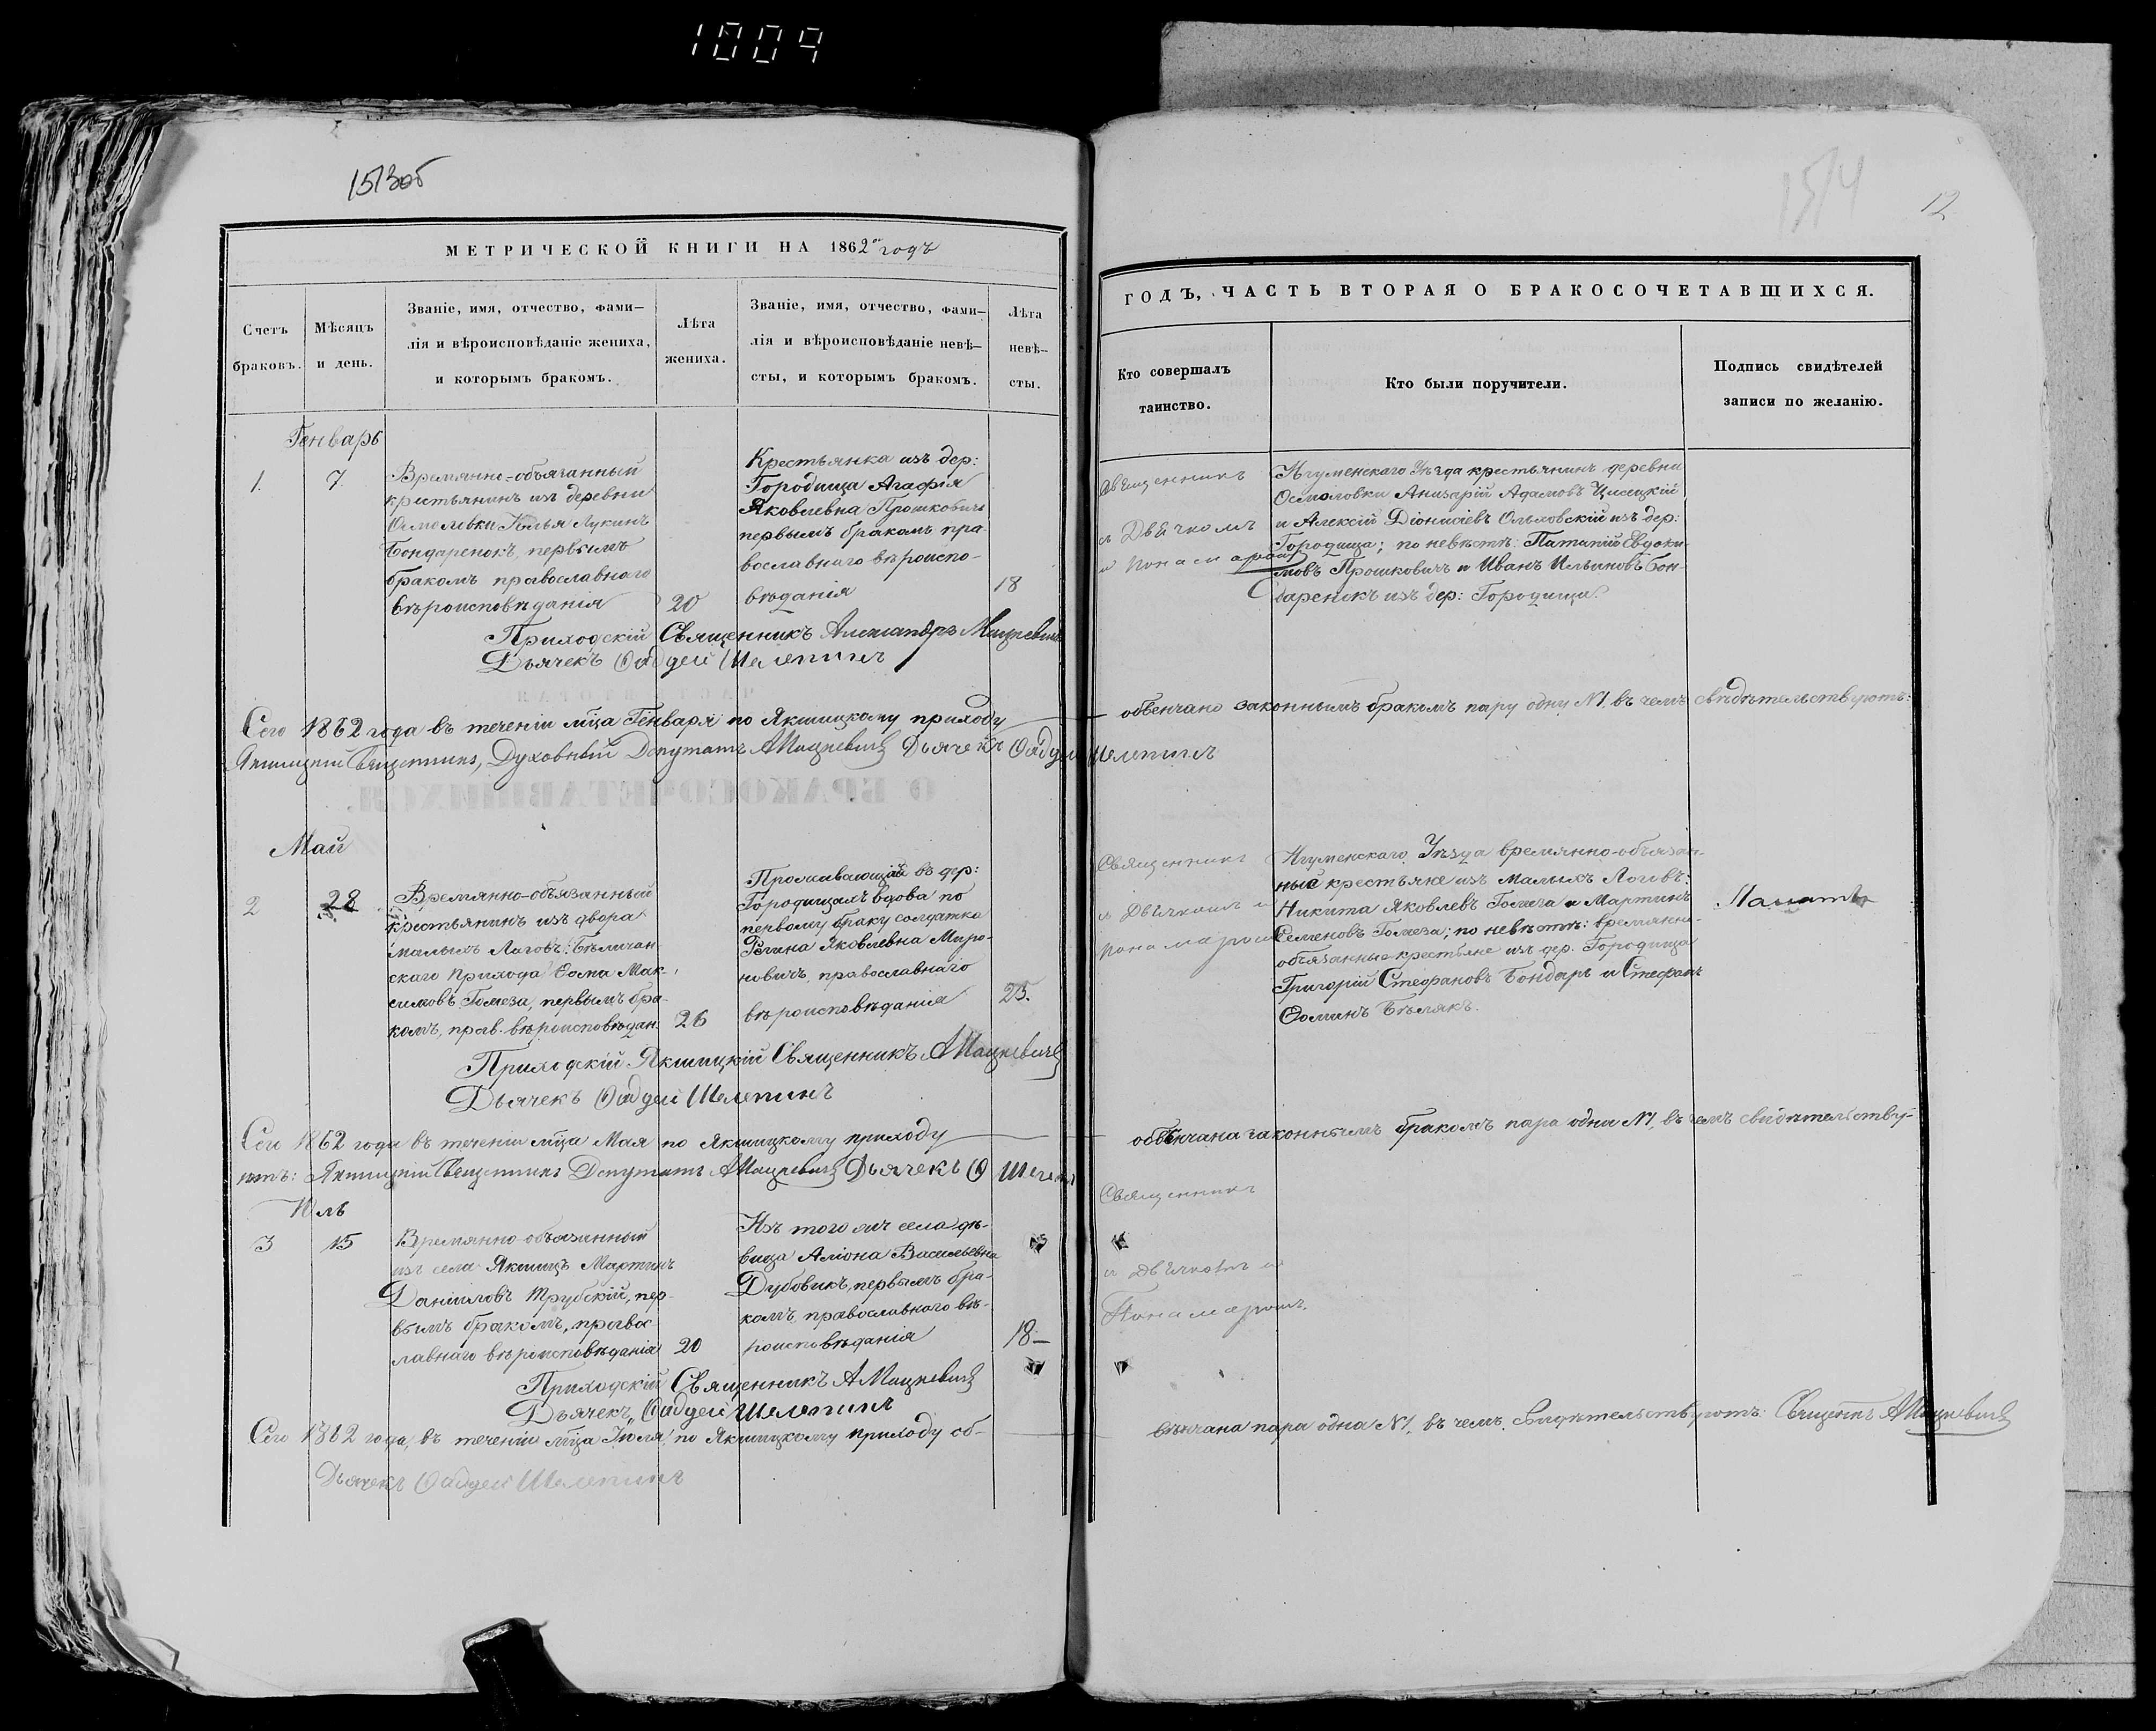 1009
1513об
1514
12
МЕТРИЧЕСКОЙ КНИГИ НА 1862 годъ
Счетъ
браковъ.
Мѣсяцъ
и день.
Званіе, имя, отчество, фами-
лія и вѣроисповѣданіе жениха,
и которымъ бракомъ.
Лѣта
жениха.
Званіе, имя, отчество, фами-
лія и вѣроисповѣданіе невѣ-
сты, и которымъ бракомъ.
Лѣта
невѣ-
сты.
ГОДЪ, ЧАСТЬ ВТОРАЯ О БРАКОСОЧЕТАВШИХСЯ.
Кто совершалъ
таинство.
Кто были поручители.
Подпись свидѣтелей
записи по желанію.
Генварь
1.
7.
Времянно-обязанный
крестьянинъ изъ деревни
Осмоловки Илья Лукинъ
Бондаренокъ, первымъ
бракомъ православнаго
вѣроисповѣданія
20
Крестьянка изъ дер:
Городища Агафія
Яковлевна Прошковичъ
первымъ бракомъ пра-
вославнаго вѣроиспо-
вѣданія
18
Священникъ
съ Дьячкомъ
и Понамаремъ
Игуменскаго Уѣзда крестьянинъ деревни
Осмоловки Адамовъ
и Алексій Діонисіевъ Ольховскій изъ дер:
Городища; по невѣстѣ: Евдоки-
мовъ Прошковичъ и Иванъ Ильиновъ Бон-
даренокъ изъ дер: Городища.
Приходскій Священникъ Александръ Мацкевичъ
Дьячекъ Фаддей Шелепинъ
Сего 1862 года въ теченіи мѣца Генваря по Якшицкому приходу
обвенчано законнымъ бракомъ пару одну №1, въ чемъ свидѣтельствуютъ:
Якшицкій Священникъ, Духовный Депутатъ АМацкевичъ Дьячекъ Фаддей Шелепинъ
Май
2
28
Времянно-обязанный
крестьянинъ изъ двора
малыхъ Логовъ: Бѣличан
скаго прихода Фома Мак-
симовъ Гомеза, первымъ бра-
комъ, прав. вѣроисповѣдан:
26
Проживающая въ дер:
Городищахъ вдова по
первому браку солдатка
Яковлевна Миро-
новичъ, православнаго
вѣроисповѣданія
25.
Священникъ
съ Дьячкомъ и
понамаремъ
Игуменскаго Уѣзда времянно-обязан-
ные крестьяне изъ Малыхъ Логовъ:
Никита Яковлевъ Гомеза и Мартинъ
Семеновъ Гомеза; по невѣстѣ: времянно-
обязанные крестьяне изъ дер. Городища
Григорій Стефановъ Бондарь и Стефанъ
Фоминъ Бѣлякъ.
Приходскій Якшицкій Священникъ АМацкевичъ
Дьячекъ Фаддей Шелепинъ
Сего 1862 года въ теченіи мѣца Мая по Якшицкому приходу
обвѣнчана законнымъ бракомъ пара одна №1, въ чемъ свидѣтельству-
ютъ: Якшицкій Священникъ Депутатъ АМацкевичъ Дьячекъ Ф
Юль
3
15
Времянно-обязанный
изъ села Якшицъ Мартинъ
Даніиловъ Трубскій, пер-
вымъ бракомъ, правос-
лавнаго вѣроисповѣданія
20
Изъ того жъ села дѣ-
вица Васильевна
Дубовикъ, первымъ бра-
комъ, православнаго вѣ-
роисповѣданія
18-
Священникъ
съ Дьячкомъ и
Понамаремъ.
Приходскій Священникъ АМацкевичъ
Дьячекъ Фаддей Шелепинъ
Сего 1862 года, въ теченіи мѣца Іюля, по Якшицкому приходу об-
вѣнчана пара одна №1, въ чемъ свидѣтельствуютъ: Священ АМацкевичъ
Дьячекъ Фаддей Шелепинъ